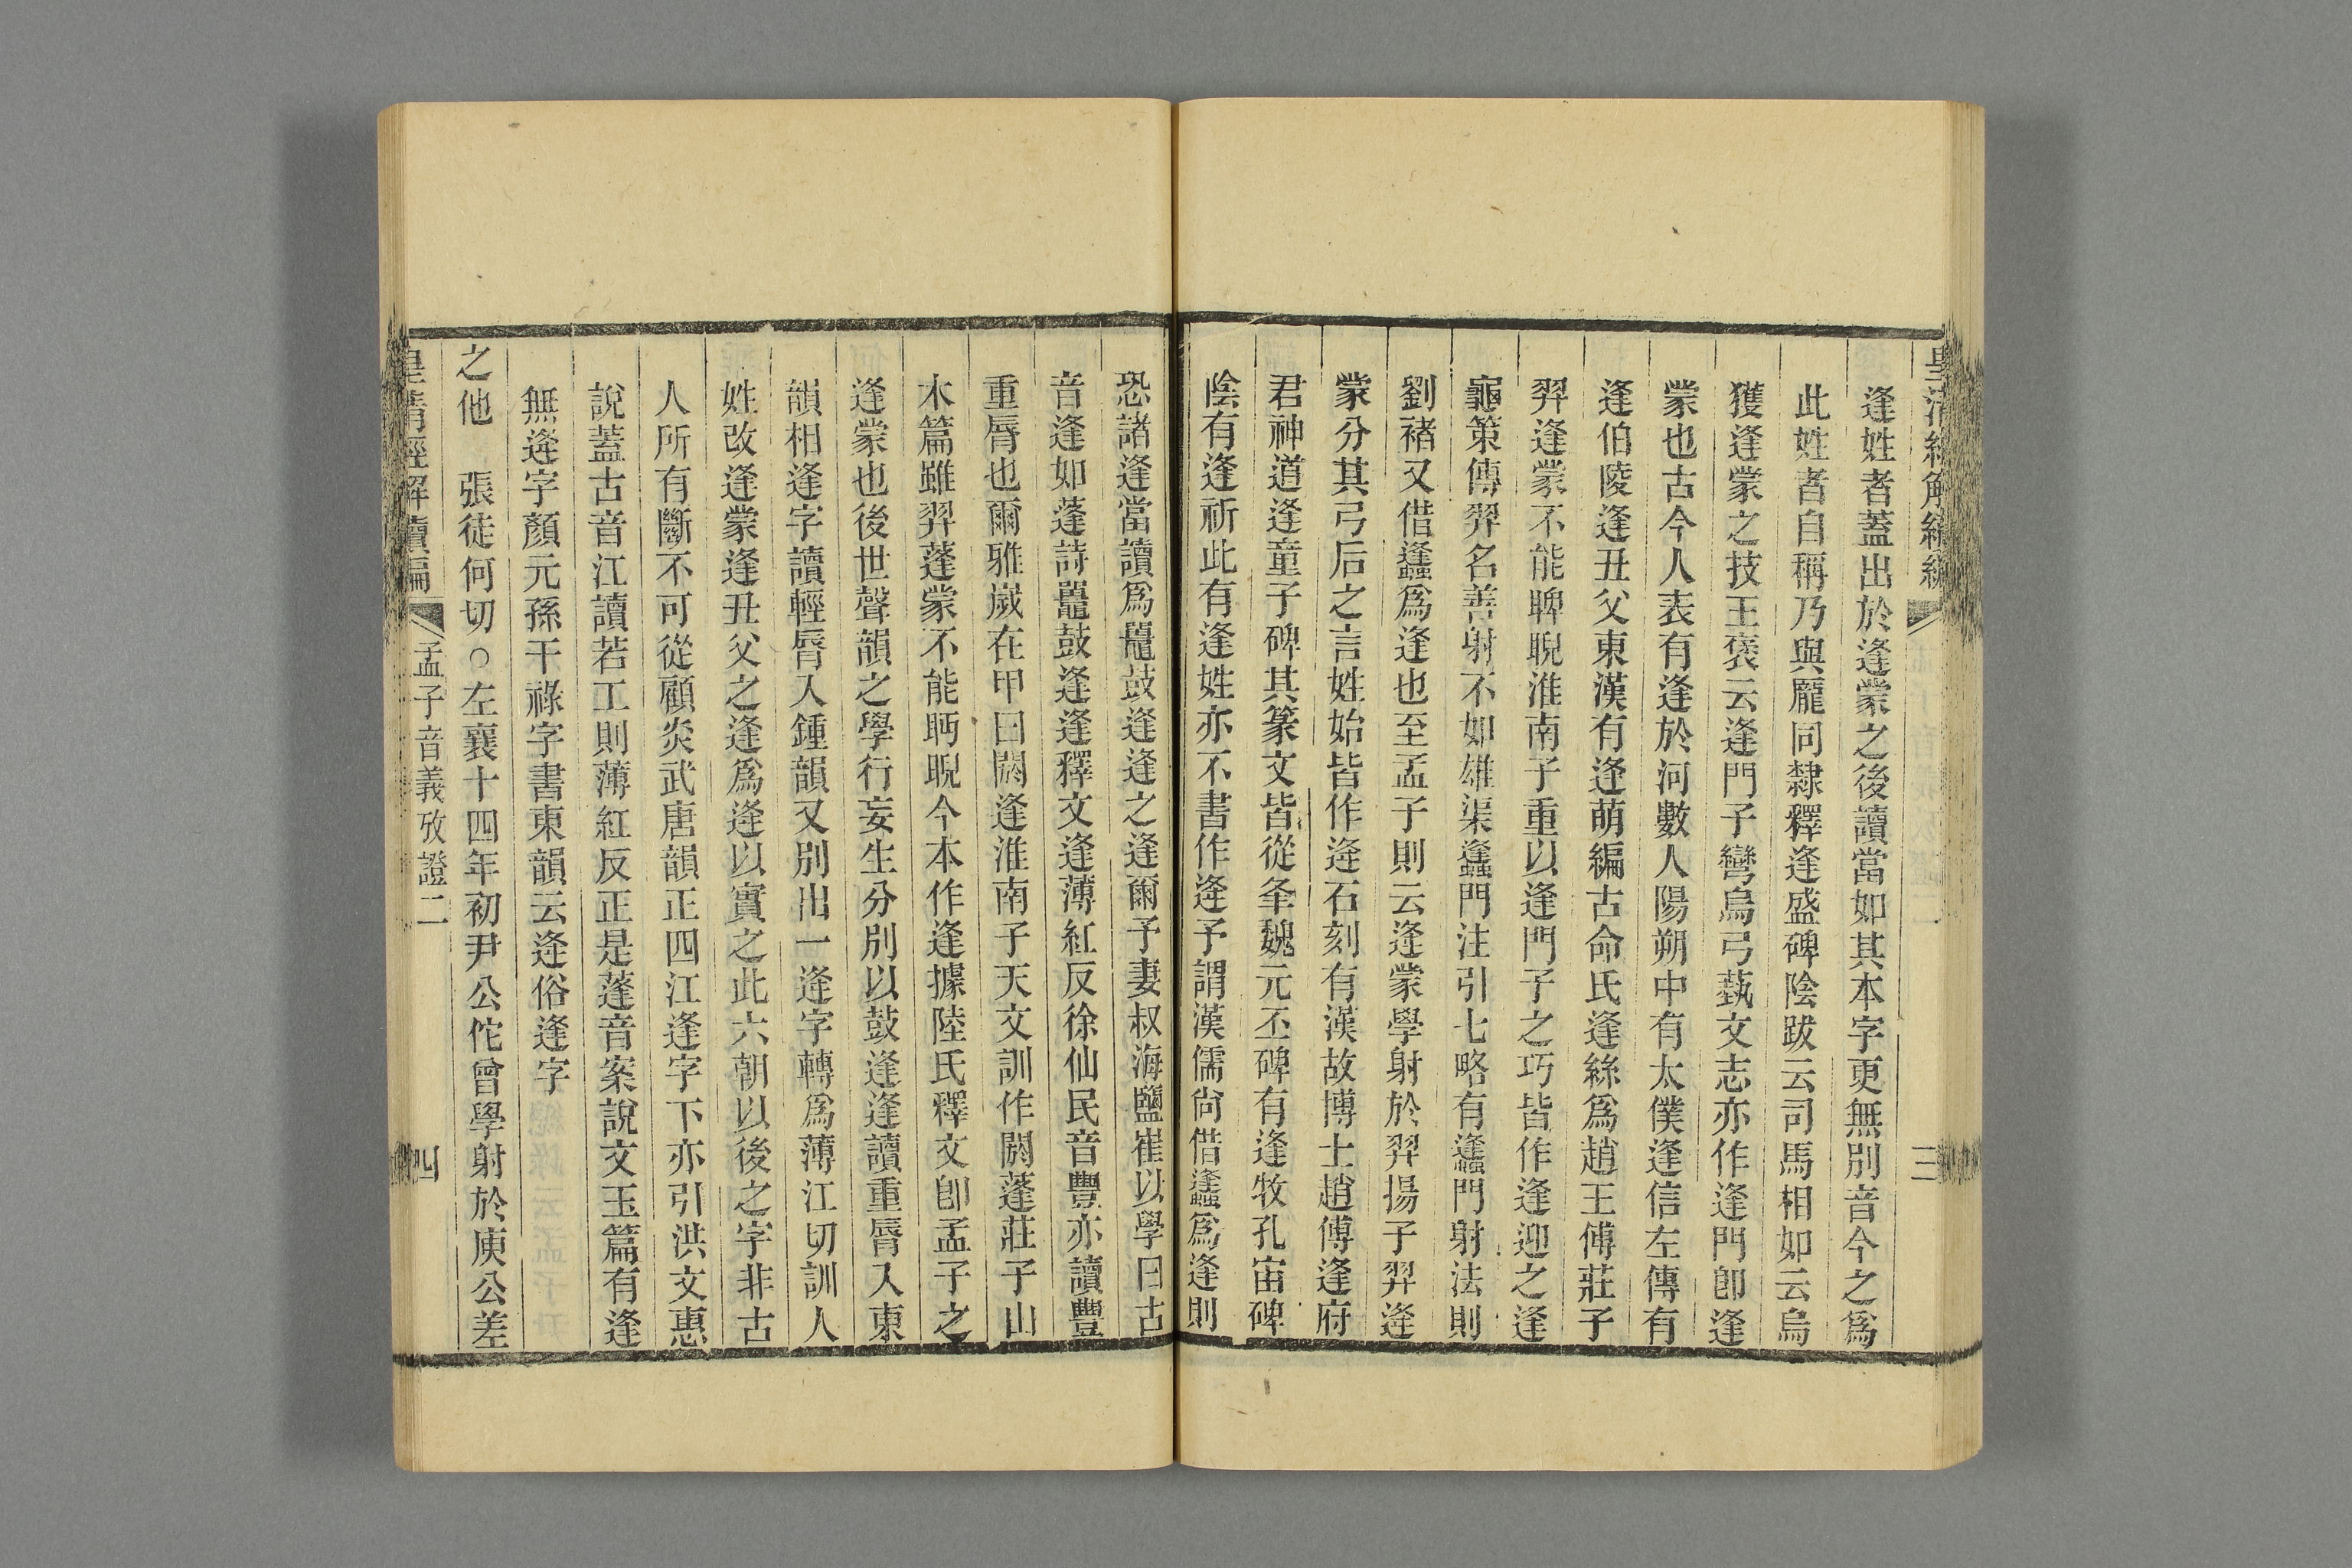 皇清經解續編
三
逢姓者蓋出於逢蒙之後讀當如其本字更無別音今之爲
此姓者自稱乃與龐同隸釋逢盛碑陰跋云司馬相如云烏
獲逢蒙之技王褒云逢門子彎烏弓蓺文志亦作逢門卽逢
蒙也古今人表有逢於河數人陽朔中有太僕逢信左傳有
逢伯陵逢丑父東漢有逢萌編古命氏逢絲爲趙王傅莊子
羿逢蒙不能睥睨淮南子重以逢門子之巧皆作逢迎之逢
龜策傳羿名善射不如雄渠蠭門注引七略有蠭門射法則
劉褚又借蠭爲逢也至孟子則云逄蒙學射於羿揚子羿逄
蒙分其弓后之言姓始皆作逄石刻有漢故博士趙傅逢府
君神道逢童子碑其篆文皆從夆魏元丕碑有逢牧孔宙碑
陰有逢祈此有逢姓亦不書作逄予謂漢儒尙借蠭爲逢則
恐諸逢當讀爲鼉鼓逢逢之逢爾予妻叔海鹽崔以學曰古
音逢如蓬詩鼉鼓逢逢釋文逢薄紅反徐仙民音豐亦讀豐
重脣也爾雅歲在甲曰閼逢淮南子天文訓作閼蓬莊子山
木篇雖羿蓬蒙不能眄睨今本作逢據陸氏釋文卽孟子之
逢蒙也後世聲韻之學行妄生分別以鼓逢逢讀重脣入東
韻相逢字讀輕脣入鍾韻又別出一逄字轉爲薄江切訓人
姓改逢蒙逢丑父之逢爲逄以實之此六朝以後之字非古
人所有斷不可從顧炎武唐韻正四江逄字下亦引洪文惠
說蓋古音江讀若工則薄紅反正是蓬音案說文玉篇有逢
無逄字顏元孫干祿字書東韻云逄俗逢字
之他　張徒何切○左襄十四年初尹公佗曾學射於庾公差
皇清經解續編
孟子音義攷證二
四